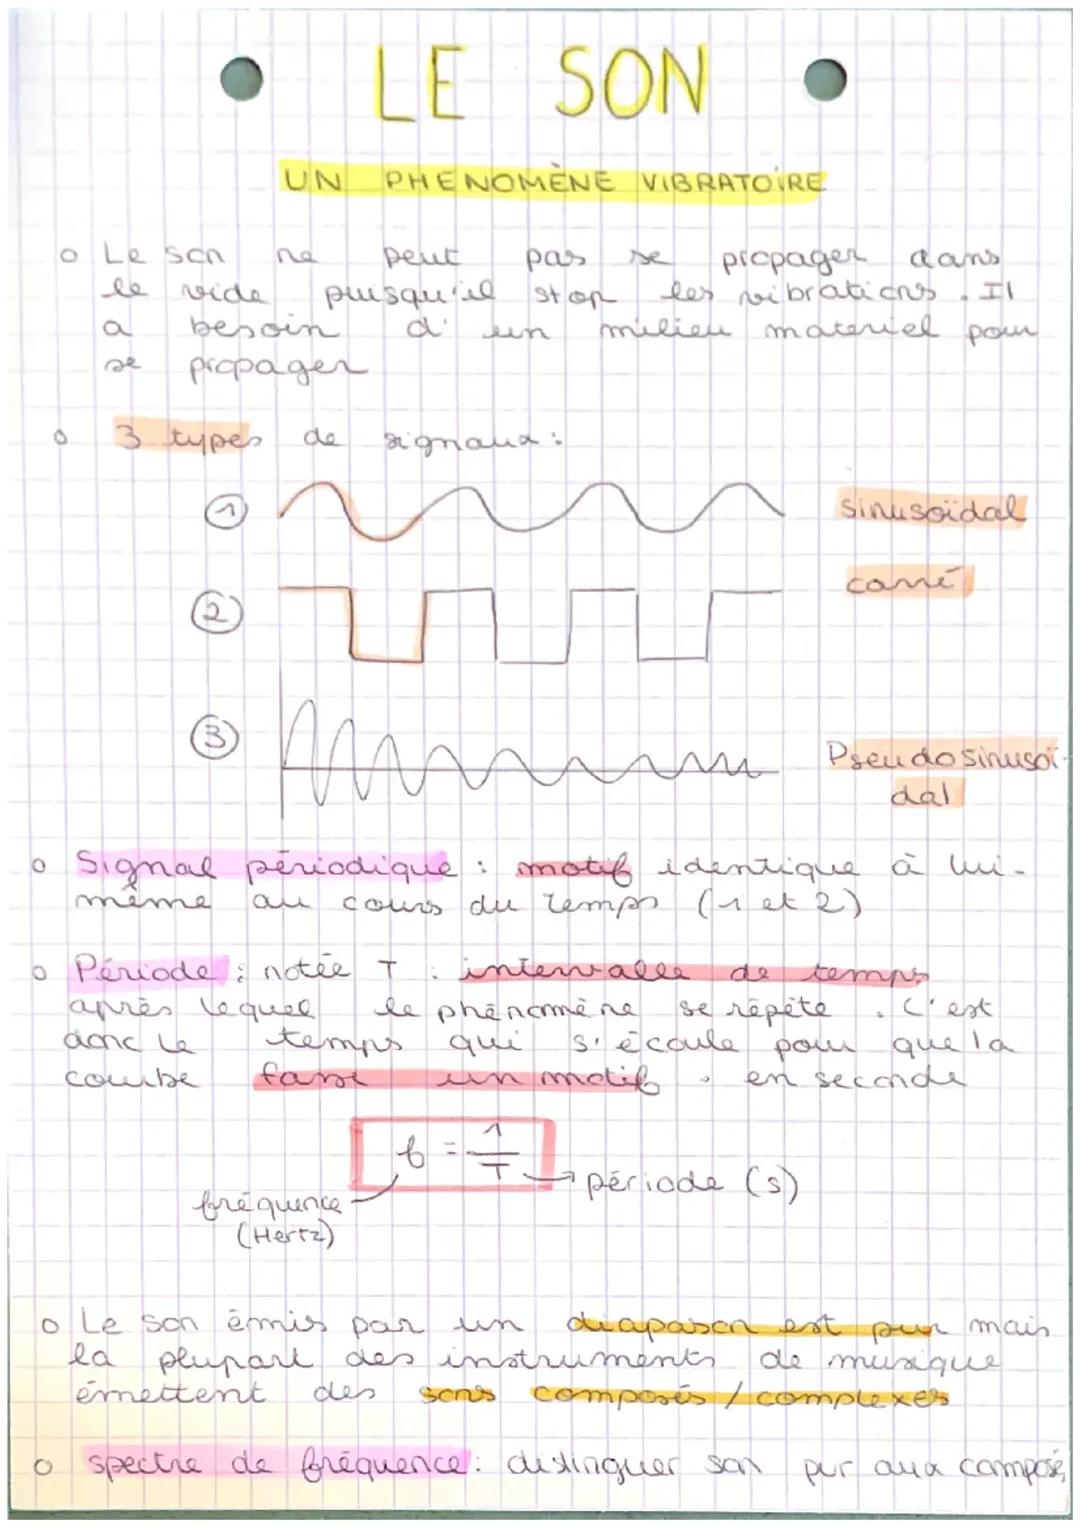 LE SON
UN PHENOMÈNE VIBRATOIRE
o Le son ne peut pas se propager dans
le vide puisqu'il stop les vibrations. Il
a besoin d'un milieu materiel pour
se propager
o 3 types de signaux :
1 sinusoïdal
2 carré
3 Pseudosinusoï-
dal
o Signal périodique : motif identique à lui-
même au cours du temps (1 et 2)
o Période : notée T : intervalle de temps
après lequel le phénomène se répète. C'est
donc le temps qui s'écoule pour que la
courbe fasse un motif, en seconde
f = 1/T → période (s)
fréquence
(Hertz)
o Le son émis par un diapason est pur mais
la plupart des instruments de musique
émettent des sons composés / complexes
o spectre de fréquence : distinguer son pur aux composés